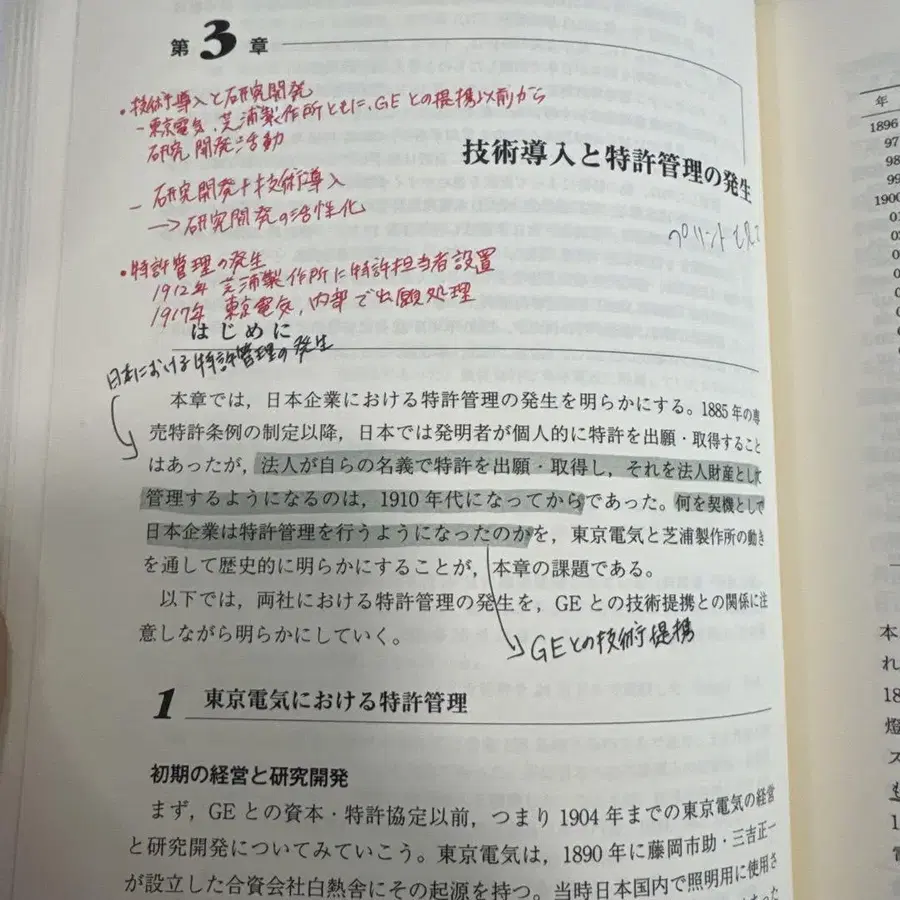 第3章
・技術導入と研究開発
－東京電気、芝浦製作所ともに、GEとの提携以前から
研究開発活動
技術導入と特許管理の発生
－研究開発＋技術導入
→研究開発の活性化
プリント
・特許管理の発生
1912年 芝浦製作所に特許担当者設置
1917年 東京電気、内部で出願処理
はじめに
日本における特許管理の発生
本章では，日本企業における特許管理の発生を明らかにする。1885年の専
売特許条例の制定以降，日本では発明者が個人的に特許を出願・取得すること
はあったが，法人が自らの名義で特許を出願・取得し，それを法人財産として
管理するようになるのは，1910年代になってからであった。何を契機として
日本企業は特許管理を行うようになったのかを，東京電気と芝浦製作所の動き
を通して歴史的に明らかにすることが，本章の課題である。
以下では，両社における特許管理の発生を，GEとの技術提携との関係に注
意しながら明らかにしていく。
GEとの技術提携
1 東京電気における特許管理
初期の経営と研究開発
まず，GEとの資本・特許協定以前，つまり1904年までの東京電気の経営
と研究開発についてみていこう。東京電気は，1890年に藤岡市助・三吉正一
が設立した合資会社白熱舎にその起源を持つ。当時日本国内で照明用に使用さ
年
1896
97
98
99
1900
01
本
れ
18
燈
ス